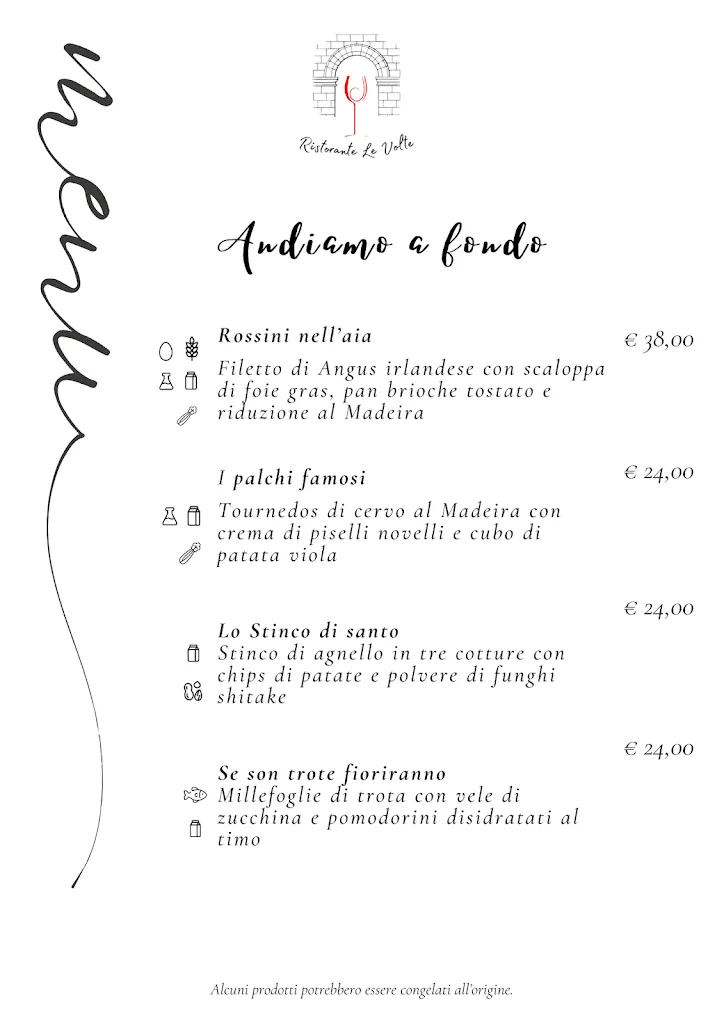 menu
Ristorante Le Volte
Andiamo a fondo
Rossini nell'aia
€ 38,00
Filetto di Angus irlandese con scaloppa
di foie gras, pan brioche tostato e
riduzione al Madeira
I palchi famosi
€ 24,00
Tournedos di cervo al Madeira con
crema di piselli novelli e cubo di
patata viola
€ 24,00
Lo Stinco di santo
Stinco di agnello in tre cotture con
chips di patate e polvere di funghi
shitake
€ 24,00
Se son trote fioriranno
Millefoglie di trota con vele di
zucchina e pomodorini disidratati al
timo
Alcuni prodotti potrebbero essere congelati all'origine.